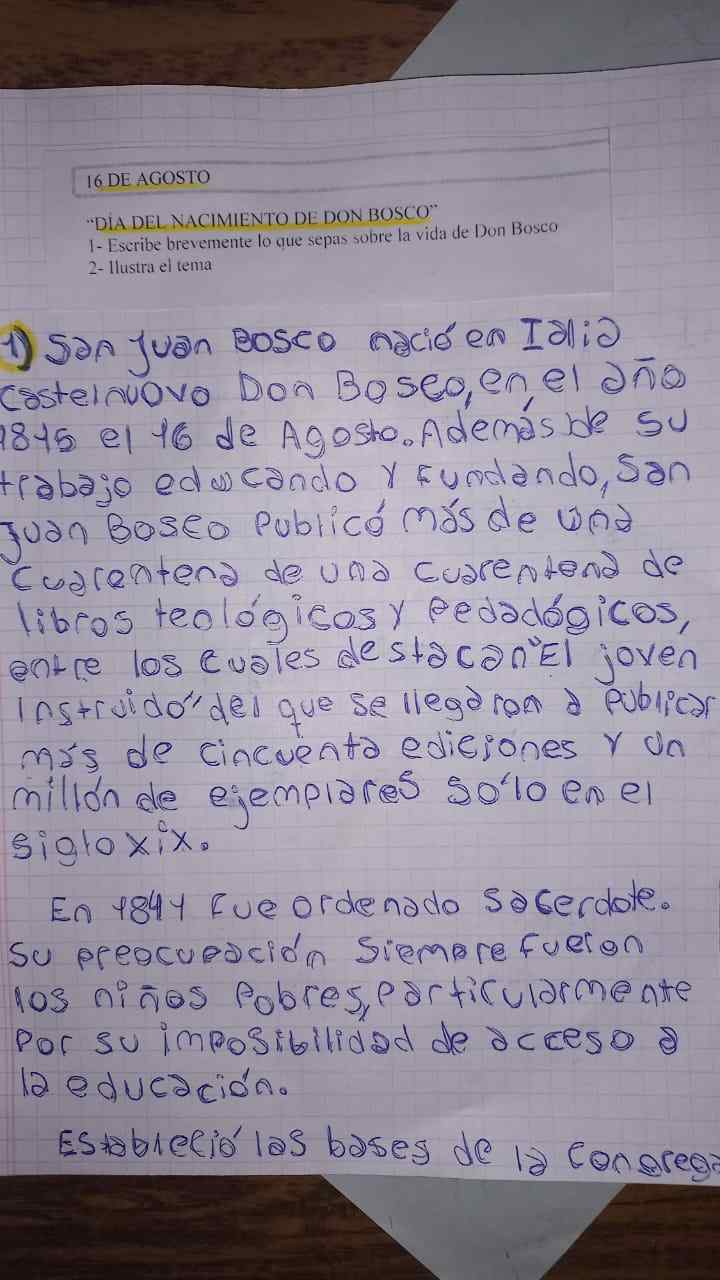 16 DE AGOSTO
“DÍA DEL NACIMIENTO DE DON BOSCO”
1- Escribe brevemente lo que sepas sobre la vida de Don Bosco
2- Ilustra el tema
1) San Juan Bosco nació en Italia
Castelnuovo Don Bosco, en el año
1815 el 16 de Agosto. Además de su
trabajo educando y fundando, San
Juan Bosco Publicó más de una
cuarentena de una cuarentena de
libros teológicos y pedadógicos,
entre los cuales destacan "El joven
Instruido" del que se llegaron a publicar
más de cincuenta ediciones y un
millón de ejemplares sólo en el
siglo xix.
En 1841 Fue ordenado Sacerdote.
Su preocupación siempre fueron
los niños pobres, particularmente
por su imposibilidad de acceso a
la educación.
Estableció las bases de la congrega